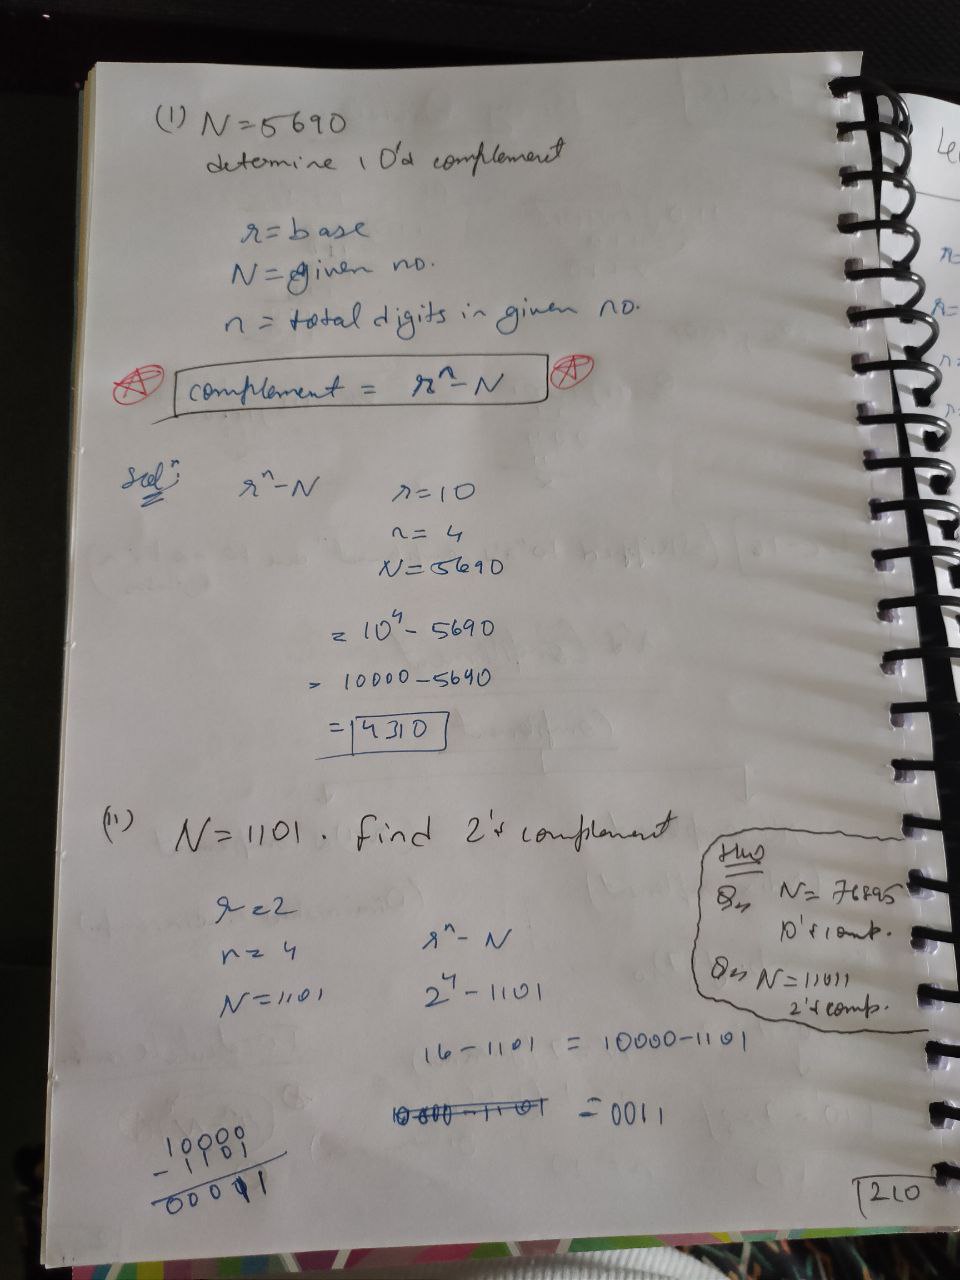 (1) N=5690
determine 10's complement
r=base
N=given no.
n= total digits in given no.
complement = rⁿ-N
Solⁿ: rⁿ-N r=10
n= 4
N=5690
= 10⁴- 5690
= 10000-5690
= 4310
(11) N=1101. find 2's complement
r=2
n= 4 rⁿ- N
N=1101 2⁴-1101
16-1101 = 10000-1101
=0011
10000
- 1101
00011
HW
Qs N= 76895
10's comp.
Qs N=11011
2's comp.
210
Le
n=
R=